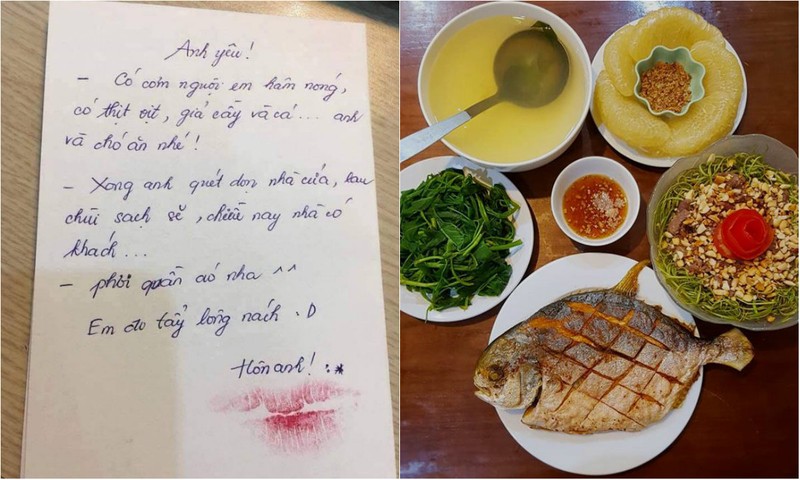 Anh yêu!
- Có cơm nguội em hâm nóng,
có thịt vịt, giả cầy và cá... anh
và chó ăn nhé!
- Xong anh quét dọn nhà cửa, lau
chùi sạch sẽ, chiều nay nhà có
khách...
- phơi quần áo nha ^^
Em đo tẩy lông nách :D
Hôn anh! :*